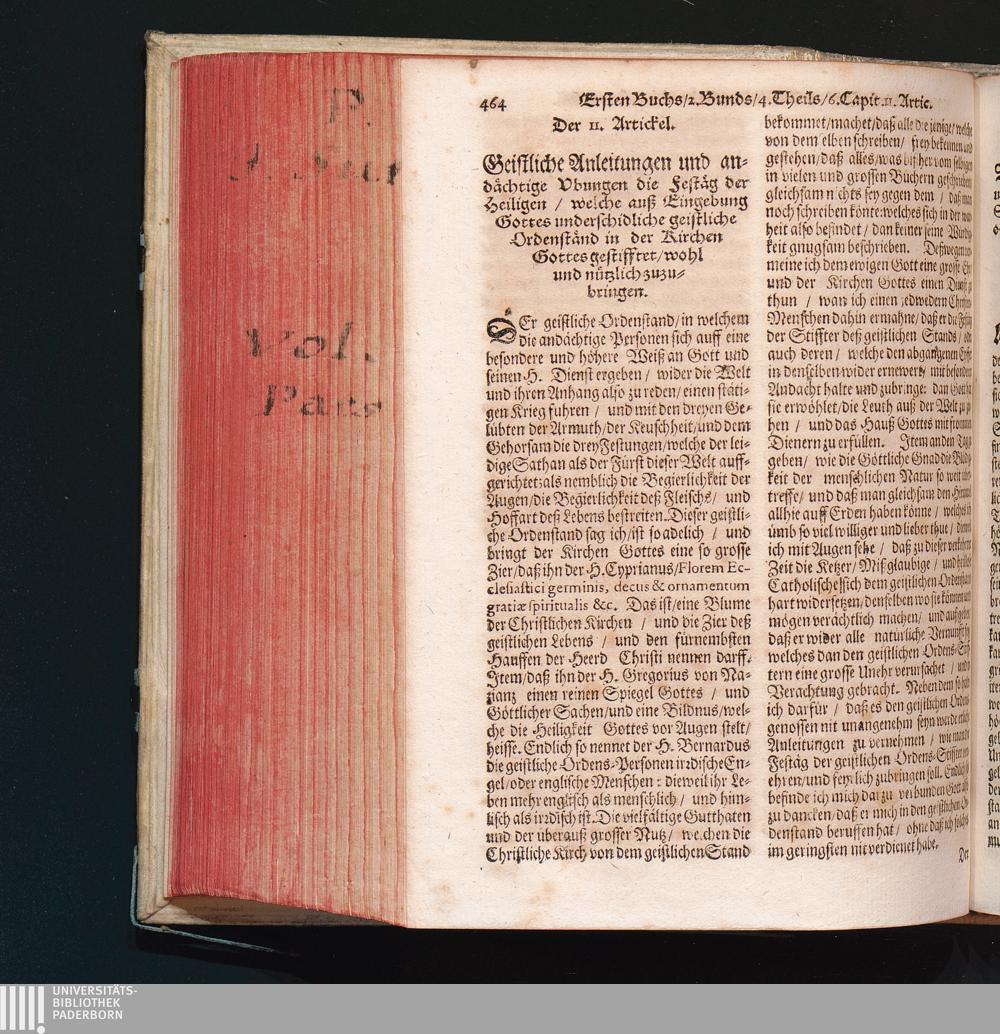 P.
Vol.
Pars
464 Ersten Buchs/2. Bunds/4. Theils/6. Capit. 11. Artic.
Der 11. Artickel.
Geistliche Anleitungen und an-
dächtige Vbungen die Festäg der
Heiligen / welche auß Eingebung
Gottes underschidliche geistliche
Ordenständ in der Kirchen
Gottes gestifftet/wohl
und nützlich zuzu-
bringen.
DEr geistliche Ordenstand/in welchem
die andächtige Personen sich auff eine
besondere und höhere Weiß an Gott und
seinen H. Dienst ergeben / wider die Welt
und ihren Anhang also zu reden/einen stäti-
gen Krieg fuhren / und mit den dreyen Ge-
lübten der Armuth/der Keuschheit/und dem
Gehorsam die drey Festungen/welche der lei-
dige Sathan als der Fürst dieser Welt auff-
gerichtet: als nemblich die Begierlichkeit der
Augen/die Begierlichkeit deß Fleischs/ und
Hoffart deß Lebens bestreiten. Dieser geistli-
che Ordenstand sag ich/ist so adelich / und
bringt der Kirchen Gottes eine so grosse
Zier/daß ihn der H. Cyprianus/Florem Ec-
clesiastici germinis, decus & ornamentum
gratiæ spiritualis &c. Das ist/eine Blume
der Christlichen Kirchen / und die Zier deß
geistlichen Lebens / und den fürnembsten
Hauffen der Heerd Christi nennen darff.
Item/daß ihn der H. Gregorius von Na-
zianz einen reinen Spiegel Gottes / und
Göttlicher Sachen/und eine Bildnus/wel-
che die Heiligkeit Gottes vor Augen stelt/
heisse. Endlich so nennet der H. Bernardus
die geistliche Ordens-Personen irrdische En-
gel/oder englische Menschen : dieweil ihr Le-
ben mehr englisch als menschlich / und him-
lisch als irrdisch ist. Die vielfältige Gutthaten
und der uberauß grosser Nutz/ welchen die
Christliche Kirch von dem geistlichen Stand
bekommet/machet/daß alle die jenige/welche
von dem elben schreiben/ frey bekennen und
gestehen/daß alles/was bißher vom selbigen
in vielen und grossen Büchern geschrieben
gleichsam nichts sey gegen dem / daß man
noch schreiben könte: welches sich in der war-
heit also befindet / dan keiner seine Würdig-
keit gnugsam beschrieben. Deßwegen ver-
meine ich dem ewigen Gott eine grosse Ehr
und der Kirchen Gottes einen Dienst zu
thun / wan ich einen jedwedern Christen-
Menschen dahin ermahne/daß er die Festäg
der Stiffter deß geistlichen Stands / oder
auch deren / welche den abgangenen Eyffer
in denselben wider ernewert/ mit besondern
Andacht halte und zubringe: dan Gott hat
sie erwöhlet/die Leuth auß der Welt zu zie-
hen / und das Hauß Gottes mit frommen
Dienern zu erfüllen. Item an den Tag zu
geben/ wie die Göttliche Gnad die Blödig-
keit der menschlichen Natur so weit uber-
treffe/ und daß man gleichsam den Himmel
allhie auff Erden haben könne / welches ich
umb so viel williger und lieber thue / dieweil
ich mit Augen sehe / daß zu dieser verkehrten
Zeit die Ketzer/ Mißglaubige / und
Catholische sich dem geistlichen Ordenstand
hart widersetzen/denselben wo sie können und
mögen verächtlich machen/ und außgeben
daß er wider alle natürliche Vernunfft sey
welches dan den geistlichen Ordens-Stiff-
tern eine grosse Unehr verursachet / und in
Verachtung gebracht. Neben dem so halte
ich darfür / daß es den geistlichen Ordens-
genossen nit unangenehm seyn werde etliche
Anleitungen zu vernehmen / wie man die
Festäg der geistlichen Ordens-Stiffter ver-
ehren/und feyrlich zubringen soll. Endlich so
befinde ich mich darzu verbunden Gott also
zu dancken/daß er mich in den geistlichen Or-
denstand beruffen hat / ohne daß ich solches
im geringsten nit verdienet habe.
Der
UNIVERSITÄTS-
BIBLIOTHEK
PADERBORN